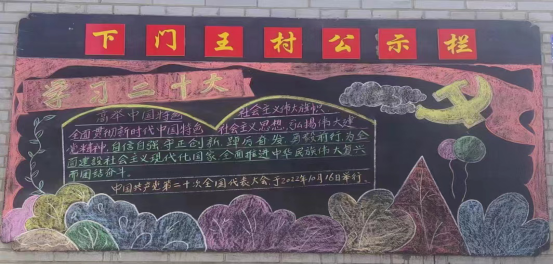 下门王村公示栏
学习二十大
高举中国特色 社会主义伟大旗帜
全面贯彻新时代中国特色 社会主义思想,弘扬伟大建
党精神,自信自强、守正创新,踔厉奋发、勇毅前行,为全
面建设社会主义现代化国家、全面推进中华民族伟大复兴
而团结奋斗。
中国共产党第二十次全国代表大会于2022年10月16日举行.